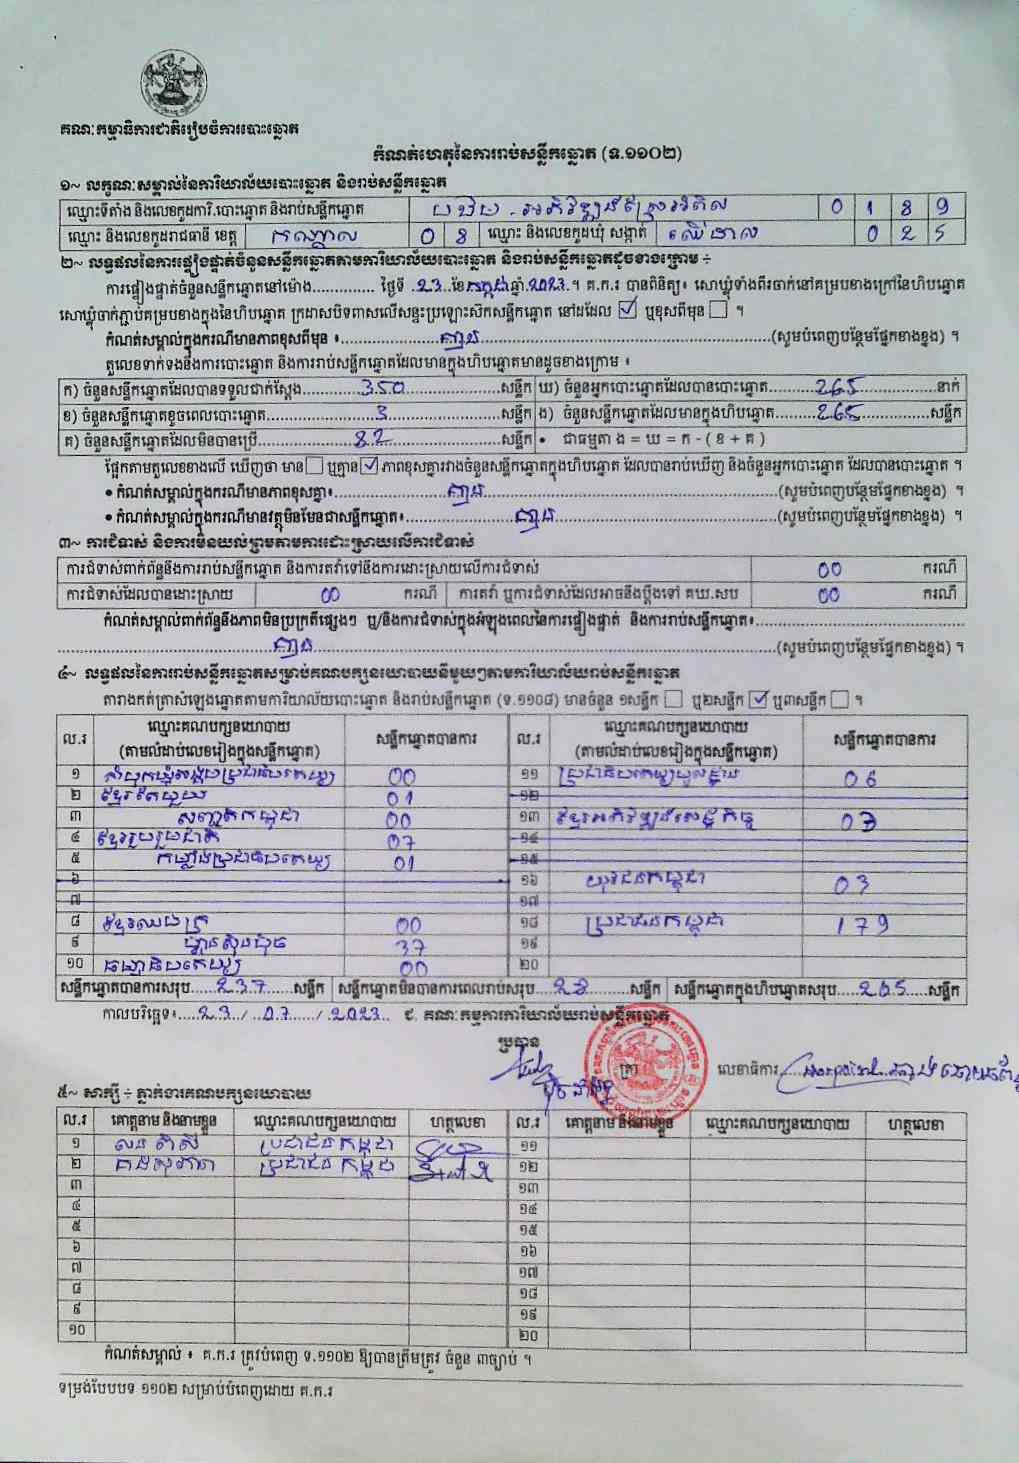 គណៈកម្មាធិការជាតិរៀបចំការបោះឆ្នោត
កំណត់ហេតុនៃការរាប់សន្លឹកឆ្នោត (ទ.១១០២)
១~ លក្ខណៈសម្គាល់នៃការិយាល័យបោះឆ្នោត និងរាប់សន្លឹកឆ្នោត
ឈ្មោះទីតាំង និងលេខកូដការិ.បោះឆ្នោត និងរាប់សន្លឹកឆ្នោត 0 1 8 9
ឈ្មោះ និងលេខកូដរាជធានី ខេត្ត កណ្តាល 0 8 ឈ្មោះ និងលេខកូដឃុំ សង្កាត់ 0 2 5
២~ លទ្ធផលនៃការផ្ទៀងផ្ទាត់ចំនួនសន្លឹកឆ្នោតតាមការិយាល័យបោះឆ្នោត និងរាប់សន្លឹកឆ្នោតដូចខាងក្រោម ÷
ការផ្ទៀងផ្ទាត់ចំនួនសន្លឹកឆ្នោតនៅម៉ោង.............. ថ្ងៃទី 23 ខែ កក្កដា ឆ្នាំ 2023 ។ គ.ក.រ បានពិនិត្យ៖ សោឃ្លុំទាំងពីរចាក់នៅគម្របខាងក្រៅនៃហិបឆ្នោត
សោឃ្លុំចាក់ភ្ជាប់គម្របខាងក្នុងនៃហិបឆ្នោត ក្រដាសបិទពាសលើសន្ទះប្រឡោះស៊កសន្លឹកឆ្នោត នៅដដែល ☑ ឬខុសពីមុន ☐ ។
កំណត់សម្គាល់ក្នុងករណីមានភាពខុសពីមុន ៖ គ្មាន (សូមបំពេញបន្ថែមផ្នែកខាងខ្នង) ។
តួលេខទាក់ទងនឹងការបោះឆ្នោត និងការរាប់សន្លឹកឆ្នោតដែលមានក្នុងហិបឆ្នោតមានដូចខាងក្រោម ៖
ក) ចំនួនសន្លឹកឆ្នោតដែលបានទទួលជាក់ស្តែង 350 សន្លឹក ឃ) ចំនួនអ្នកបោះឆ្នោតដែលបានបោះឆ្នោត 265 នាក់
ខ) ចំនួនសន្លឹកឆ្នោតខូចពេលបោះឆ្នោត 3 សន្លឹក ង) ចំនួនសន្លឹកឆ្នោតដែលមានក្នុងហិបឆ្នោត 265 សន្លឹក
គ) ចំនួនសន្លឹកឆ្នោតដែលមិនបានប្រើ 82 សន្លឹក • ជាធម្មតា ង = ឃ = ក - ( ខ + គ )
ផ្អែកតាមតួលេខខាងលើ ឃើញថា មាន ☐ ឬគ្មាន ☑ ភាពខុសគ្នារវាងចំនួនសន្លឹកឆ្នោតក្នុងហិបឆ្នោត ដែលបានរាប់ឃើញ និងចំនួនអ្នកបោះឆ្នោត ដែលបានបោះឆ្នោត ។
• កំណត់សម្គាល់ក្នុងករណីមានភាពខុសគ្នា៖ គ្មាន (សូមបំពេញបន្ថែមផ្នែកខាងខ្នង) ។
• កំណត់សម្គាល់ក្នុងករណីមានវត្ថុមិនមែនជាសន្លឹកឆ្នោត៖ គ្មាន (សូមបំពេញបន្ថែមផ្នែកខាងខ្នង) ។
៣~ ការជំទាស់ និងការមិនយល់ព្រមតាមការដោះស្រាយលើការជំទាស់
ការជំទាស់ពាក់ព័ន្ធនឹងការរាប់សន្លឹកឆ្នោត និងការតវ៉ាទៅនឹងការដោះស្រាយលើការជំទាស់ 00 ករណី
ការជំទាស់ដែលបានដោះស្រាយ 00 ករណី ការតវ៉ា ឬការជំទាស់ដែលអាចនឹងប្តឹងទៅ គឃ.សប 00 ករណី
កំណត់សម្គាល់ពាក់ព័ន្ធនឹងភាពមិនប្រក្រតីផ្សេងៗ ឬ/និងការជំទាស់ក្នុងអំឡុងពេលនៃការផ្ទៀងផ្ទាត់ និងការរាប់សន្លឹកឆ្នោត៖
គ្មាន (សូមបំពេញបន្ថែមផ្នែកខាងខ្នង) ។
៤~ លទ្ធផលនៃការរាប់សន្លឹកឆ្នោតសម្រាប់គណបក្សនយោបាយនីមួយៗតាមការិយាល័យរាប់សន្លឹកឆ្នោត
តារាងកត់ត្រាសំឡេងឆ្នោតតាមការិយាល័យបោះឆ្នោត និងរាប់សន្លឹកឆ្នោត (ទ.១១០៨) មានចំនួន ១សន្លឹក ☐ ឬ២សន្លឹក ☑ ឬ៣សន្លឹក ☐ ។
ល.រ ឈ្មោះគណបក្សនយោបាយ (តាមលំដាប់លេខរៀងក្នុងសន្លឹកឆ្នោត) សន្លឹកឆ្នោតបានការ ល.រ ឈ្មោះគណបក្សនយោបាយ (តាមលំដាប់លេខរៀងក្នុងសន្លឹកឆ្នោត) សន្លឹកឆ្នោតបានការ
១ សំបុកឃ្មុំសង្គមប្រជាធិបតេយ្យ 00 ១១ ប្រជាធិបតេយ្យមូលដ្ឋាន 06
២ ខ្មែរតែមួយ 01 ១២
៣ សញ្ជាតិកម្ពុជា 00 ១៣ ខ្មែរអភិវឌ្ឍន៍សេដ្ឋកិច្ច 03
៤ ខ្មែររួបរួមជាតិ 07 ១៤
៥ កម្លាំងប្រជាធិបតេយ្យ 01 ១៥
៦ ១៦ យុវជនកម្ពុជា 03
៧ ១៧
៨ ខ្មែរឈប់ក្រ 00 ១៨ ប្រជាជនកម្ពុជា 179
៩ ហ្វ៊ុនស៊ិនប៉ិច 37 ១៩
១០ ធម្មាធិបតេយ្យ 00 ២០
សន្លឹកឆ្នោតបានការសរុប 237 សន្លឹក សន្លឹកឆ្នោតមិនបានការពេលរាប់សរុប 28 សន្លឹក សន្លឹកឆ្នោតក្នុងហិបឆ្នោតសរុប 265 សន្លឹក
កាលបរិច្ឆេទ៖ 23 / 07 / 2023 ជ. គណៈកម្មការការិយាល័យរាប់សន្លឹកឆ្នោត
ប្រធាន
លេខាធិការ
៥~ សាក្សី ÷ ភ្នាក់ងារគណបក្សនយោបាយ
ល.រ គោត្តនាម និងនាមខ្លួន ឈ្មោះគណបក្សនយោបាយ ហត្ថលេខា ល.រ គោត្តនាម និងនាមខ្លួន ឈ្មោះគណបក្សនយោបាយ ហត្ថលេខា
១ ប្រជាជនកម្ពុជា ១១
២ ប្រជាជនកម្ពុជា ១២
៣ ១៣
៤ ១៤
៥ ១៥
៦ ១៦
៧ ១៧
៨ ១៨
៩ ១៩
១០ ២០
កំណត់សម្គាល់ ៖ គ.ក.រ ត្រូវបំពេញ ទ.១១០២ ឱ្យបានត្រឹមត្រូវ ចំនួន ៣ច្បាប់ ។
ទម្រង់បែបបទ ១១០២ សម្រាប់បំពេញដោយ គ.ក.រ